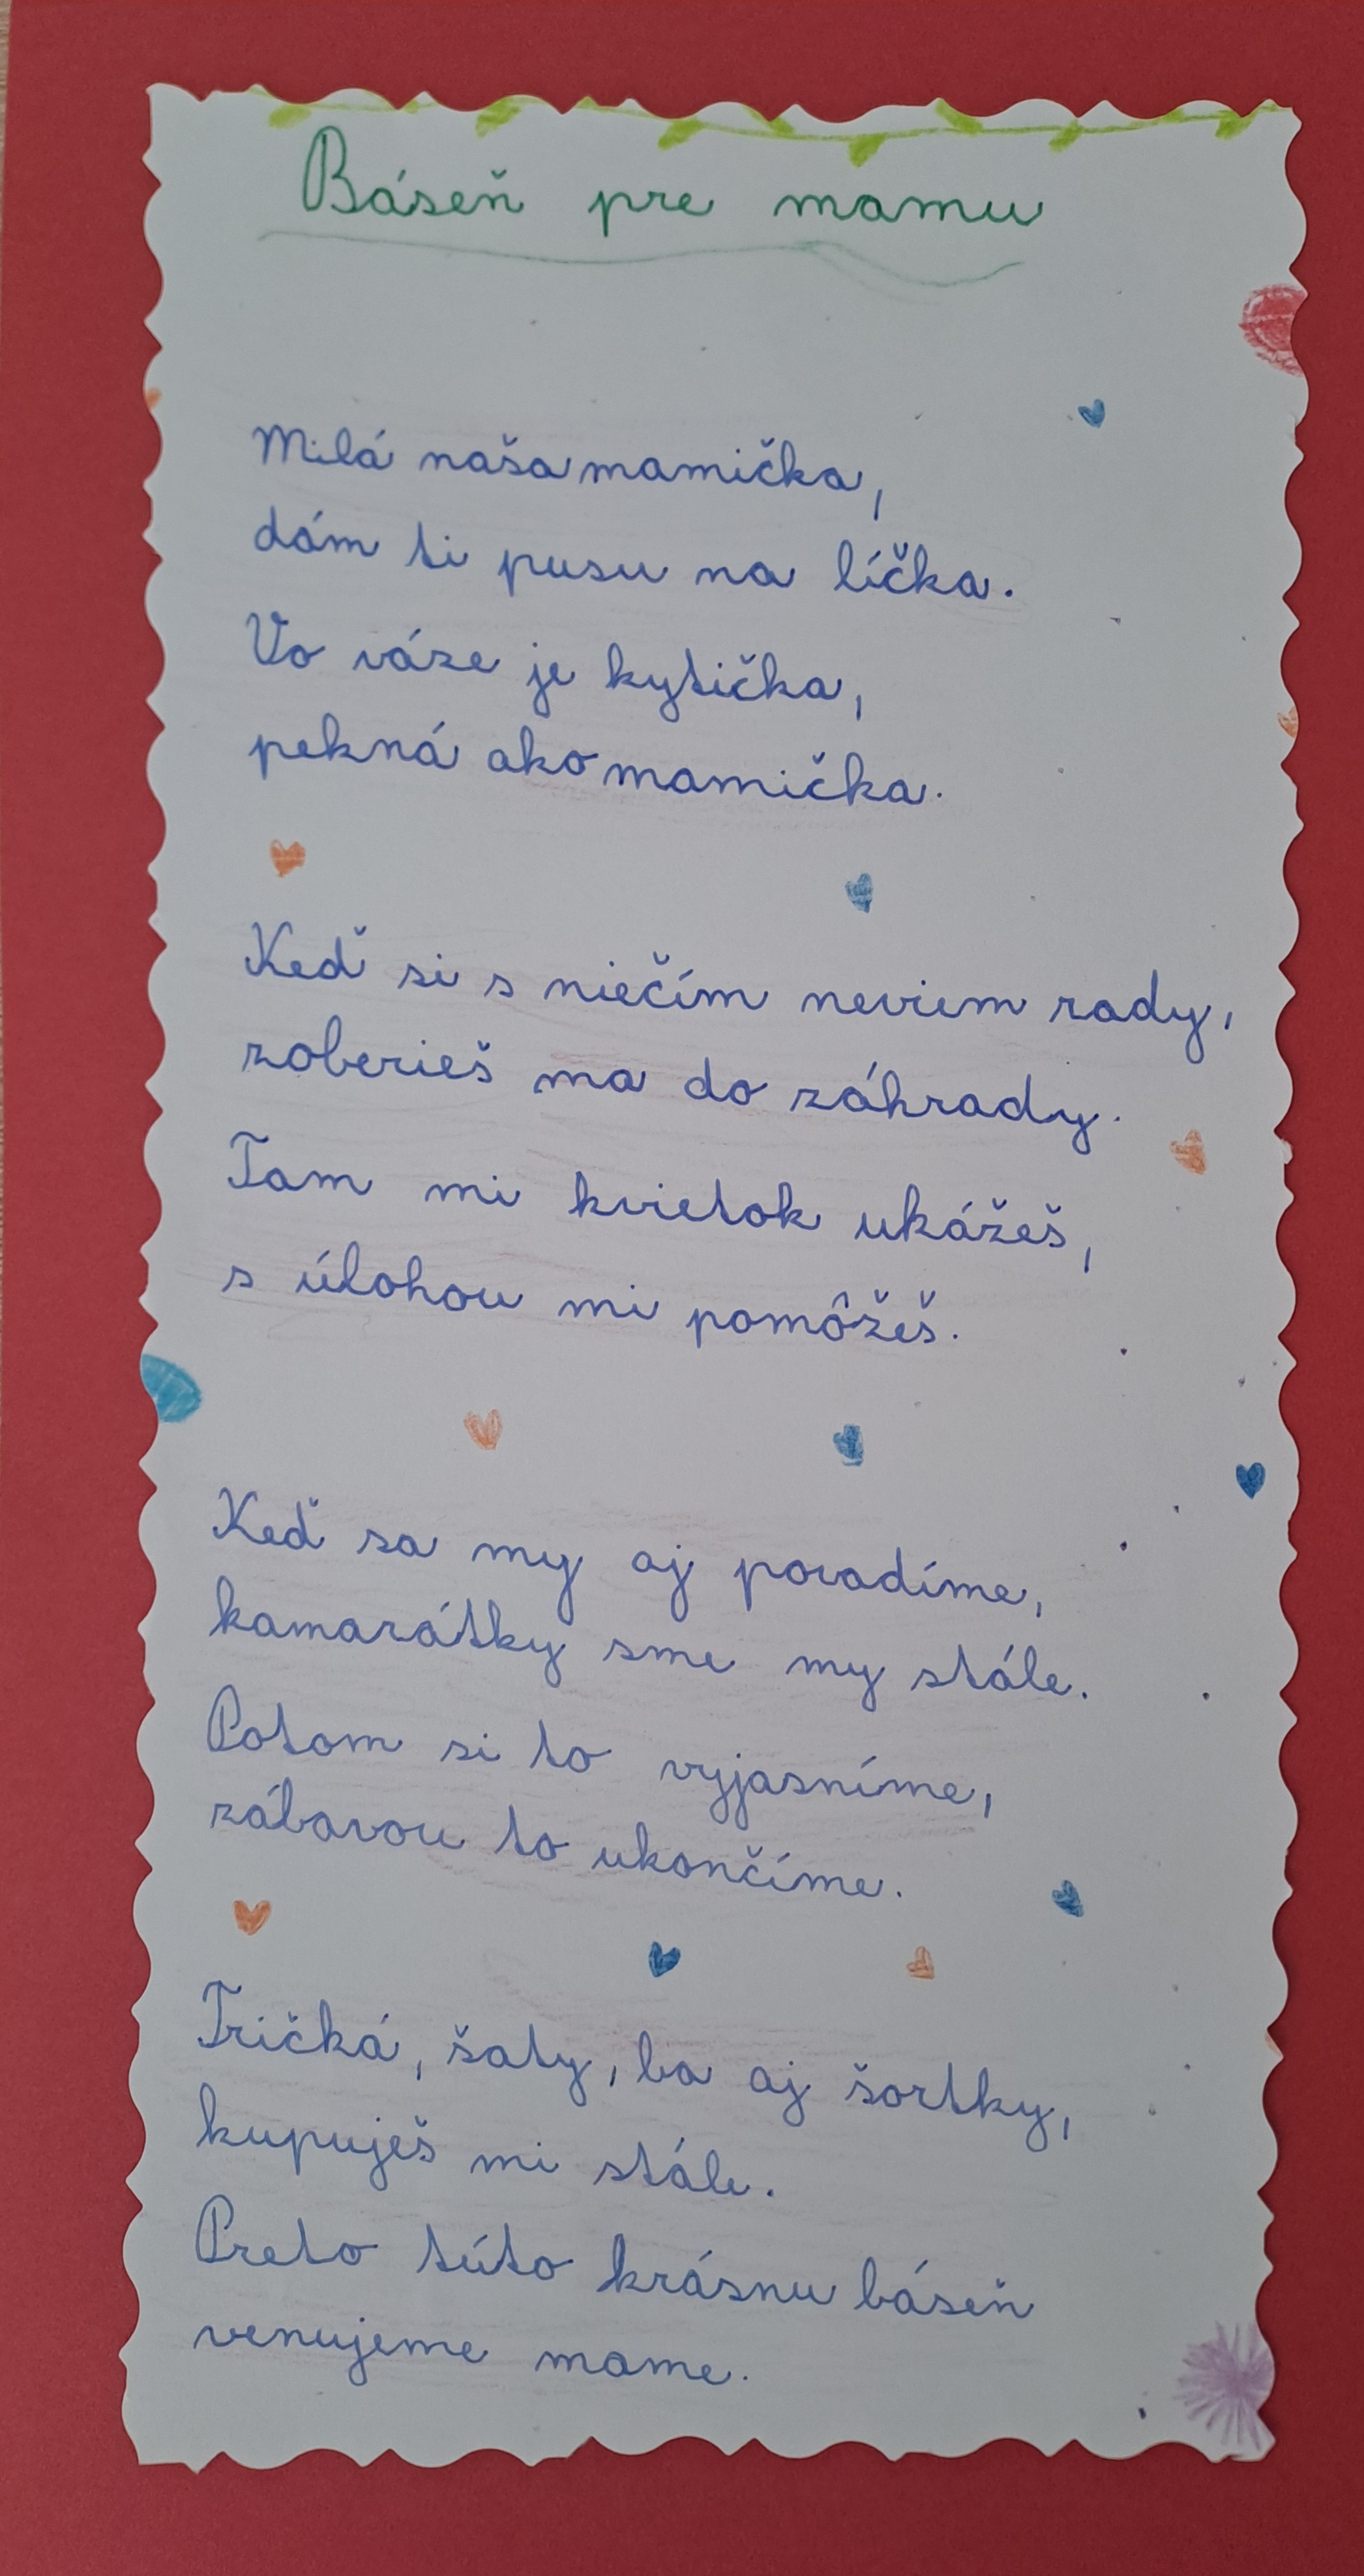 Báseň pre mamu
Milá naša mamička,
dám ti pusu na líčka.
Vo váze je kytička,
pekná ako mamička.
Keď si s niečím neviem rady,
zoberieš ma do záhrady.
Tam mi kvietok ukážeš,
s úlohou mi pomôžeš.
Keď sa my aj povadíme,
kamarátky sme my stále.
Potom si to vyjasníme,
zábavou to ukončíme.
Tričká, šaty, ba aj šortky,
kupuješ mi stále.
Preto túto krásnu báseň
venujeme mame.